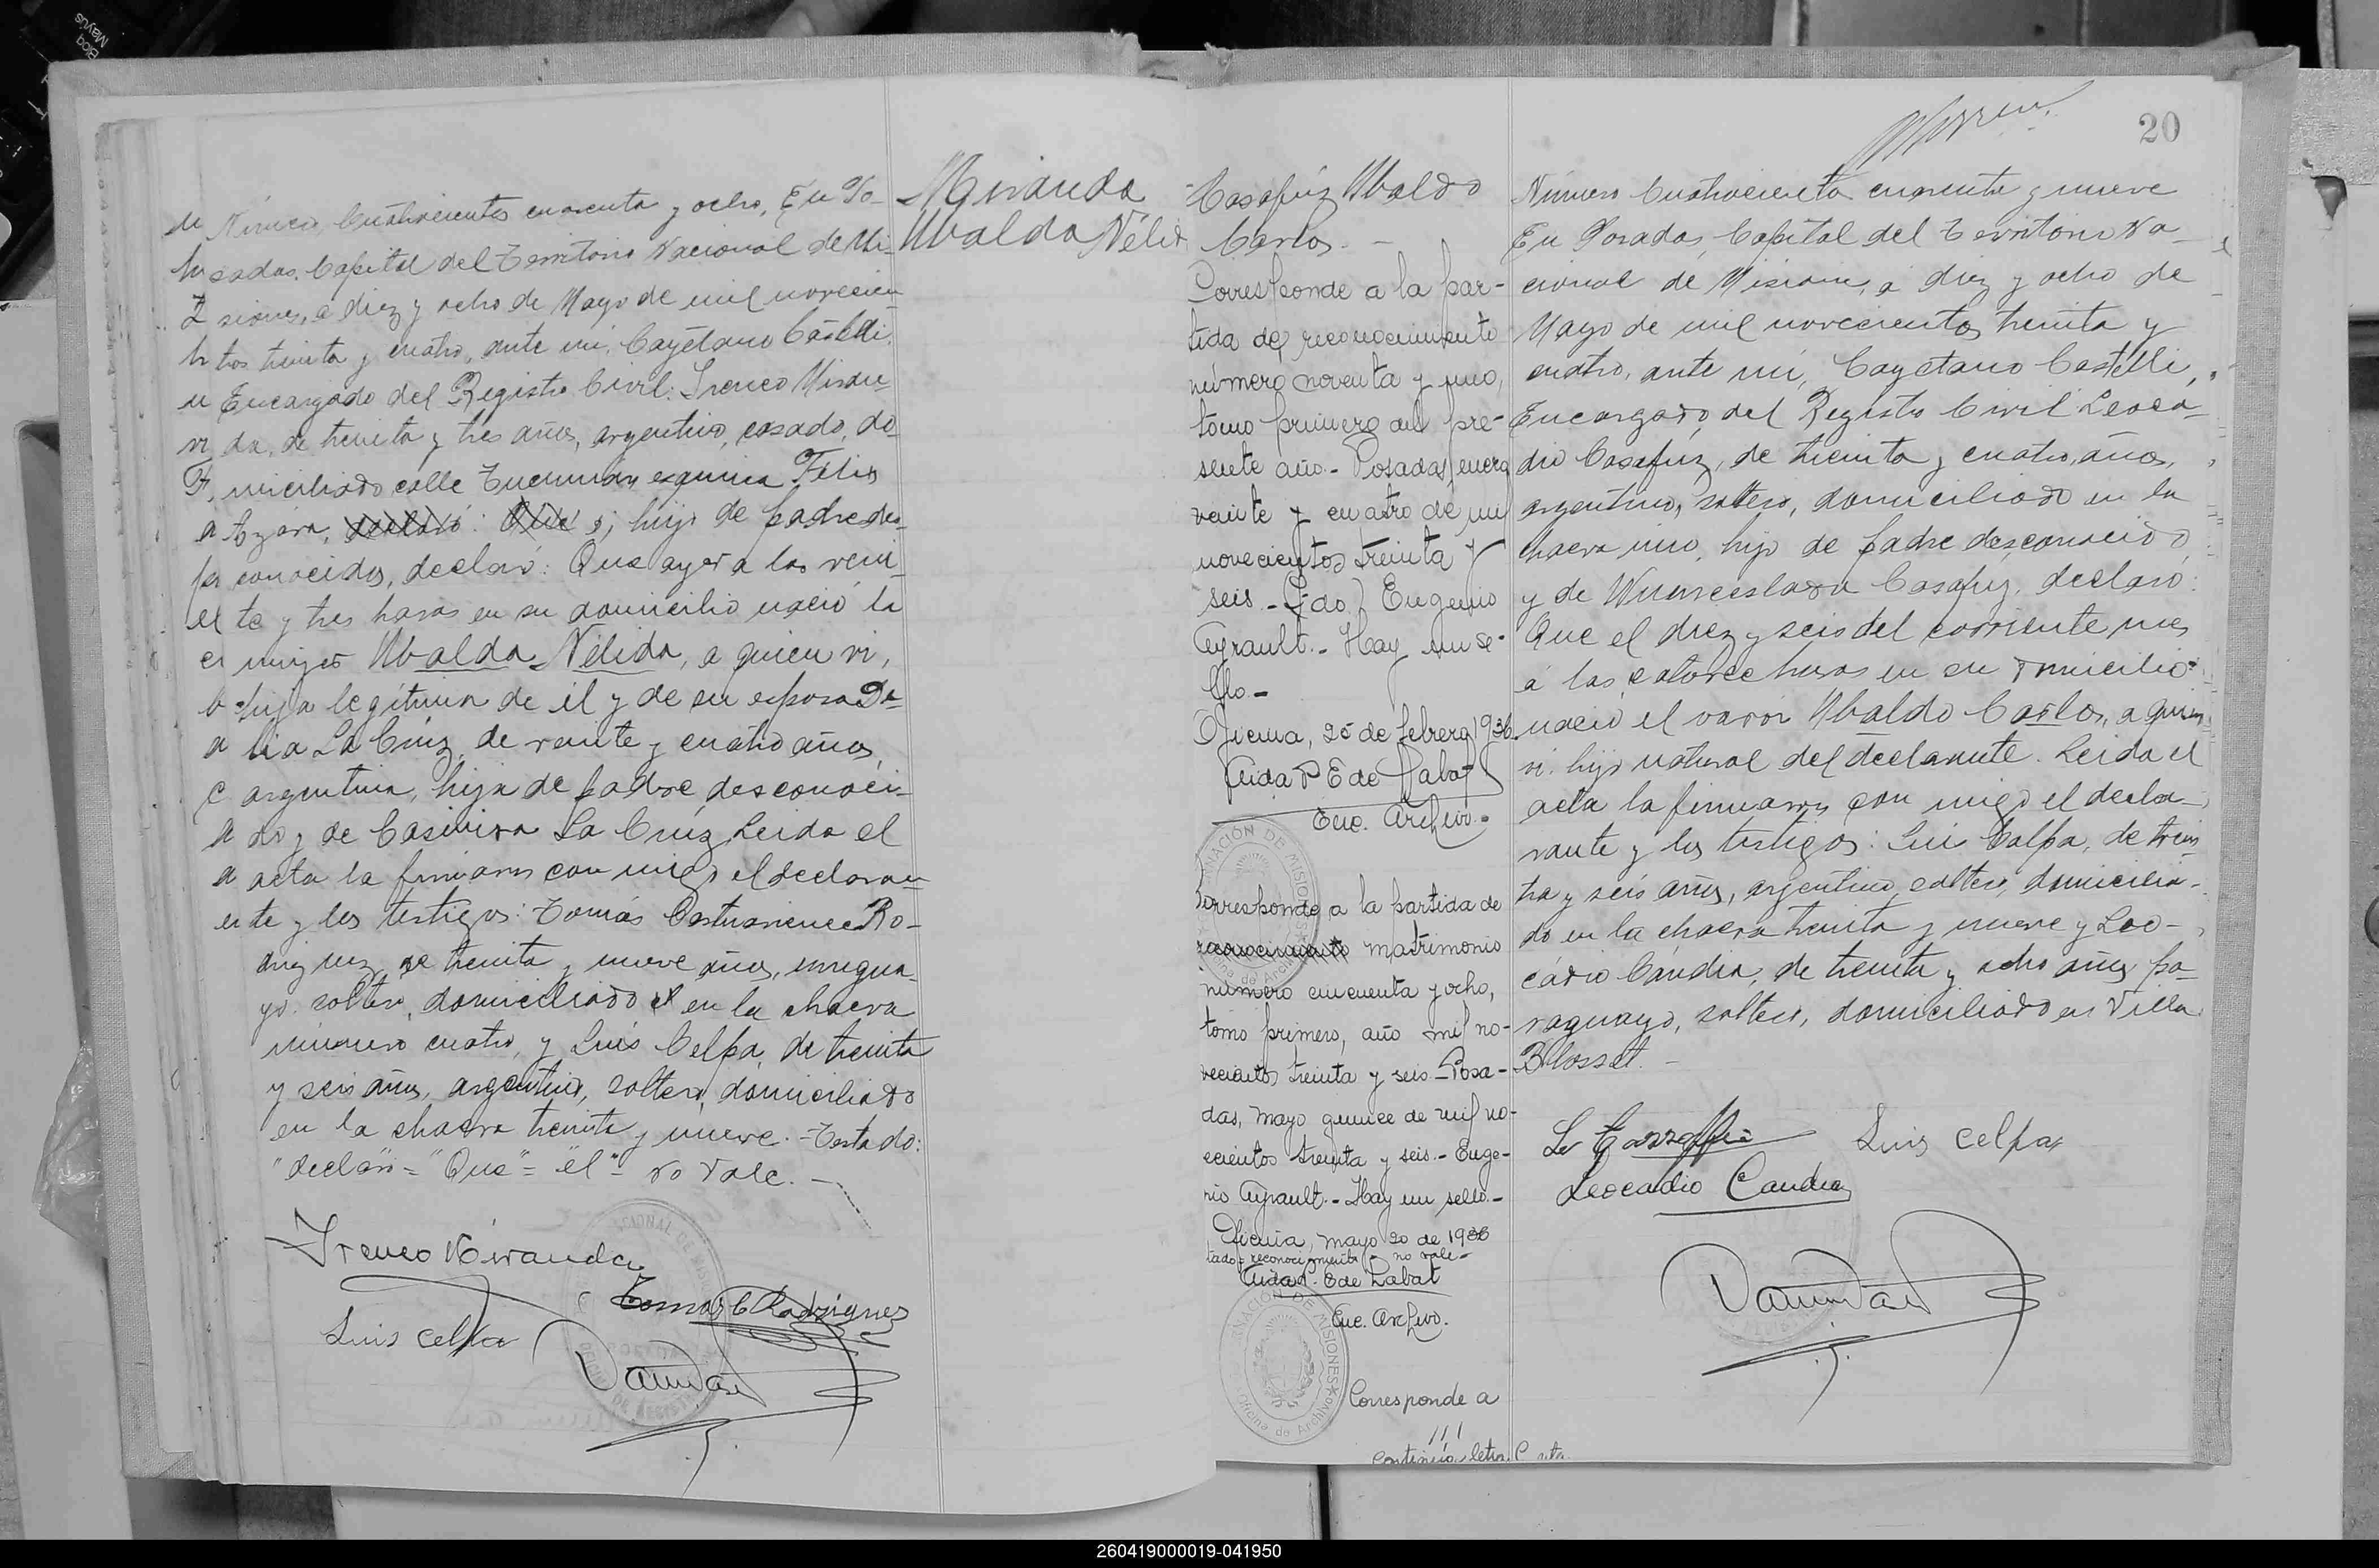 Número Cuatrocientos cuarenta y ocho. En Po-
sadas, Capital del Territorio Nacional de Mi-
siones, a diez y ocho de Mayo de mil novecien-
tos treinta y cuatro, ante mí, Cayetano Castelli,
Encargado del Registro Civil: Ireneo Miran-
da, de treinta y tres años, argentino, casado, do-
miciliado calle Tucumán esquina Félix
Azara, declaró: Que hijo de padre des-
conocidos, declaró: Que ayer a las vein-
te y tres horas en su domicilio nació la
mujer Ubalda Nélida, a quien vi,
hija legítima de él y de su esposa De-
lia La Cruz, de veinte y cuatro años,
argentina, hija de padre desconoci-
do y de Casimira La Cruz. Leida el
acta la firmaron con migo el declaran-
te y los testigos: Tomás Ro-
driguez, de treinta y nueve años, urugua-
yo, soltero, domiciliado el en la chacra
número cuatro, y Luis Celpa, de treinta
y seis años, argentino, soltero, domiciliado
en la chacra treinta y nueve. - Testado:
"declaró" = "Que" = "el" - no vale. -
Ireneo Miranda
Tomas C Rodrigues
Luis Celpa
Miranda
Ubalda Nélida
20
Casafúz Ubaldo
Carlos. -
Corresponde a la par-
tida de reconocimiento
número noventa y uno,
tomo primero del pre-
sente año. - Posadas, enero
veinte y cuatro de mil
novecientos treinta y
seis. - (Fdo.) Eugenio
Ayrault. - Hay un se-
llo. -
Oficina, 25 de febrero 1936.
Aida P E de Labat
Enc. Archivo. -
Corresponde a la partida de
reconocimiento matrimonio
número cincuenta y ocho,
tomo primero, año mil no-
vecientos treinta y seis - Posa-
das, mayo quince de mil no-
vecientos treinta y seis. - Euge-
nio Ayrault. - Hay un sello. -
Oficina, mayo 20 de 1936
tado = reconocimiento = no vale -
Aida P. E de Labat
Enc. Archivo.
Corresponde a
///
Continúa letra C
Número Cuatrocientos cuarenta y nueve
En Posadas, Capital del Territorio Na-
cional de Misiones, a diez y ocho de
Mayo de mil novecientos treinta y
cuatro, ante mí, Cayetano Castelli,
Encargado del Registro Civil Leoca-
dio Casafúz, de treinta y cuatro, años,
argentino, soltero, domiciliado en la
chacra uno, hijo de padre desconocido
y de Wenceslada Casafuz, declaró:
Que el diez y seis del corriente mes
á las catorce horas en su domicilio
nació el varón Ubaldo Carlos, a quien
vi, hijo natural del declarante. Leida el
acta la firmaron con migo el decla-
rante y los testigos: Luis Celpa, de trein-
ta y seis años, argentino, soltero, domicilia-
do en la chacra treinta y nueve y Leo-
cádio Cándia, de treinta y ocho años, pa-
raguayo, soltero, domiciliado en Villa
Blosset. -
Luis Celpa
Leocadio Candia
260419000019-041950